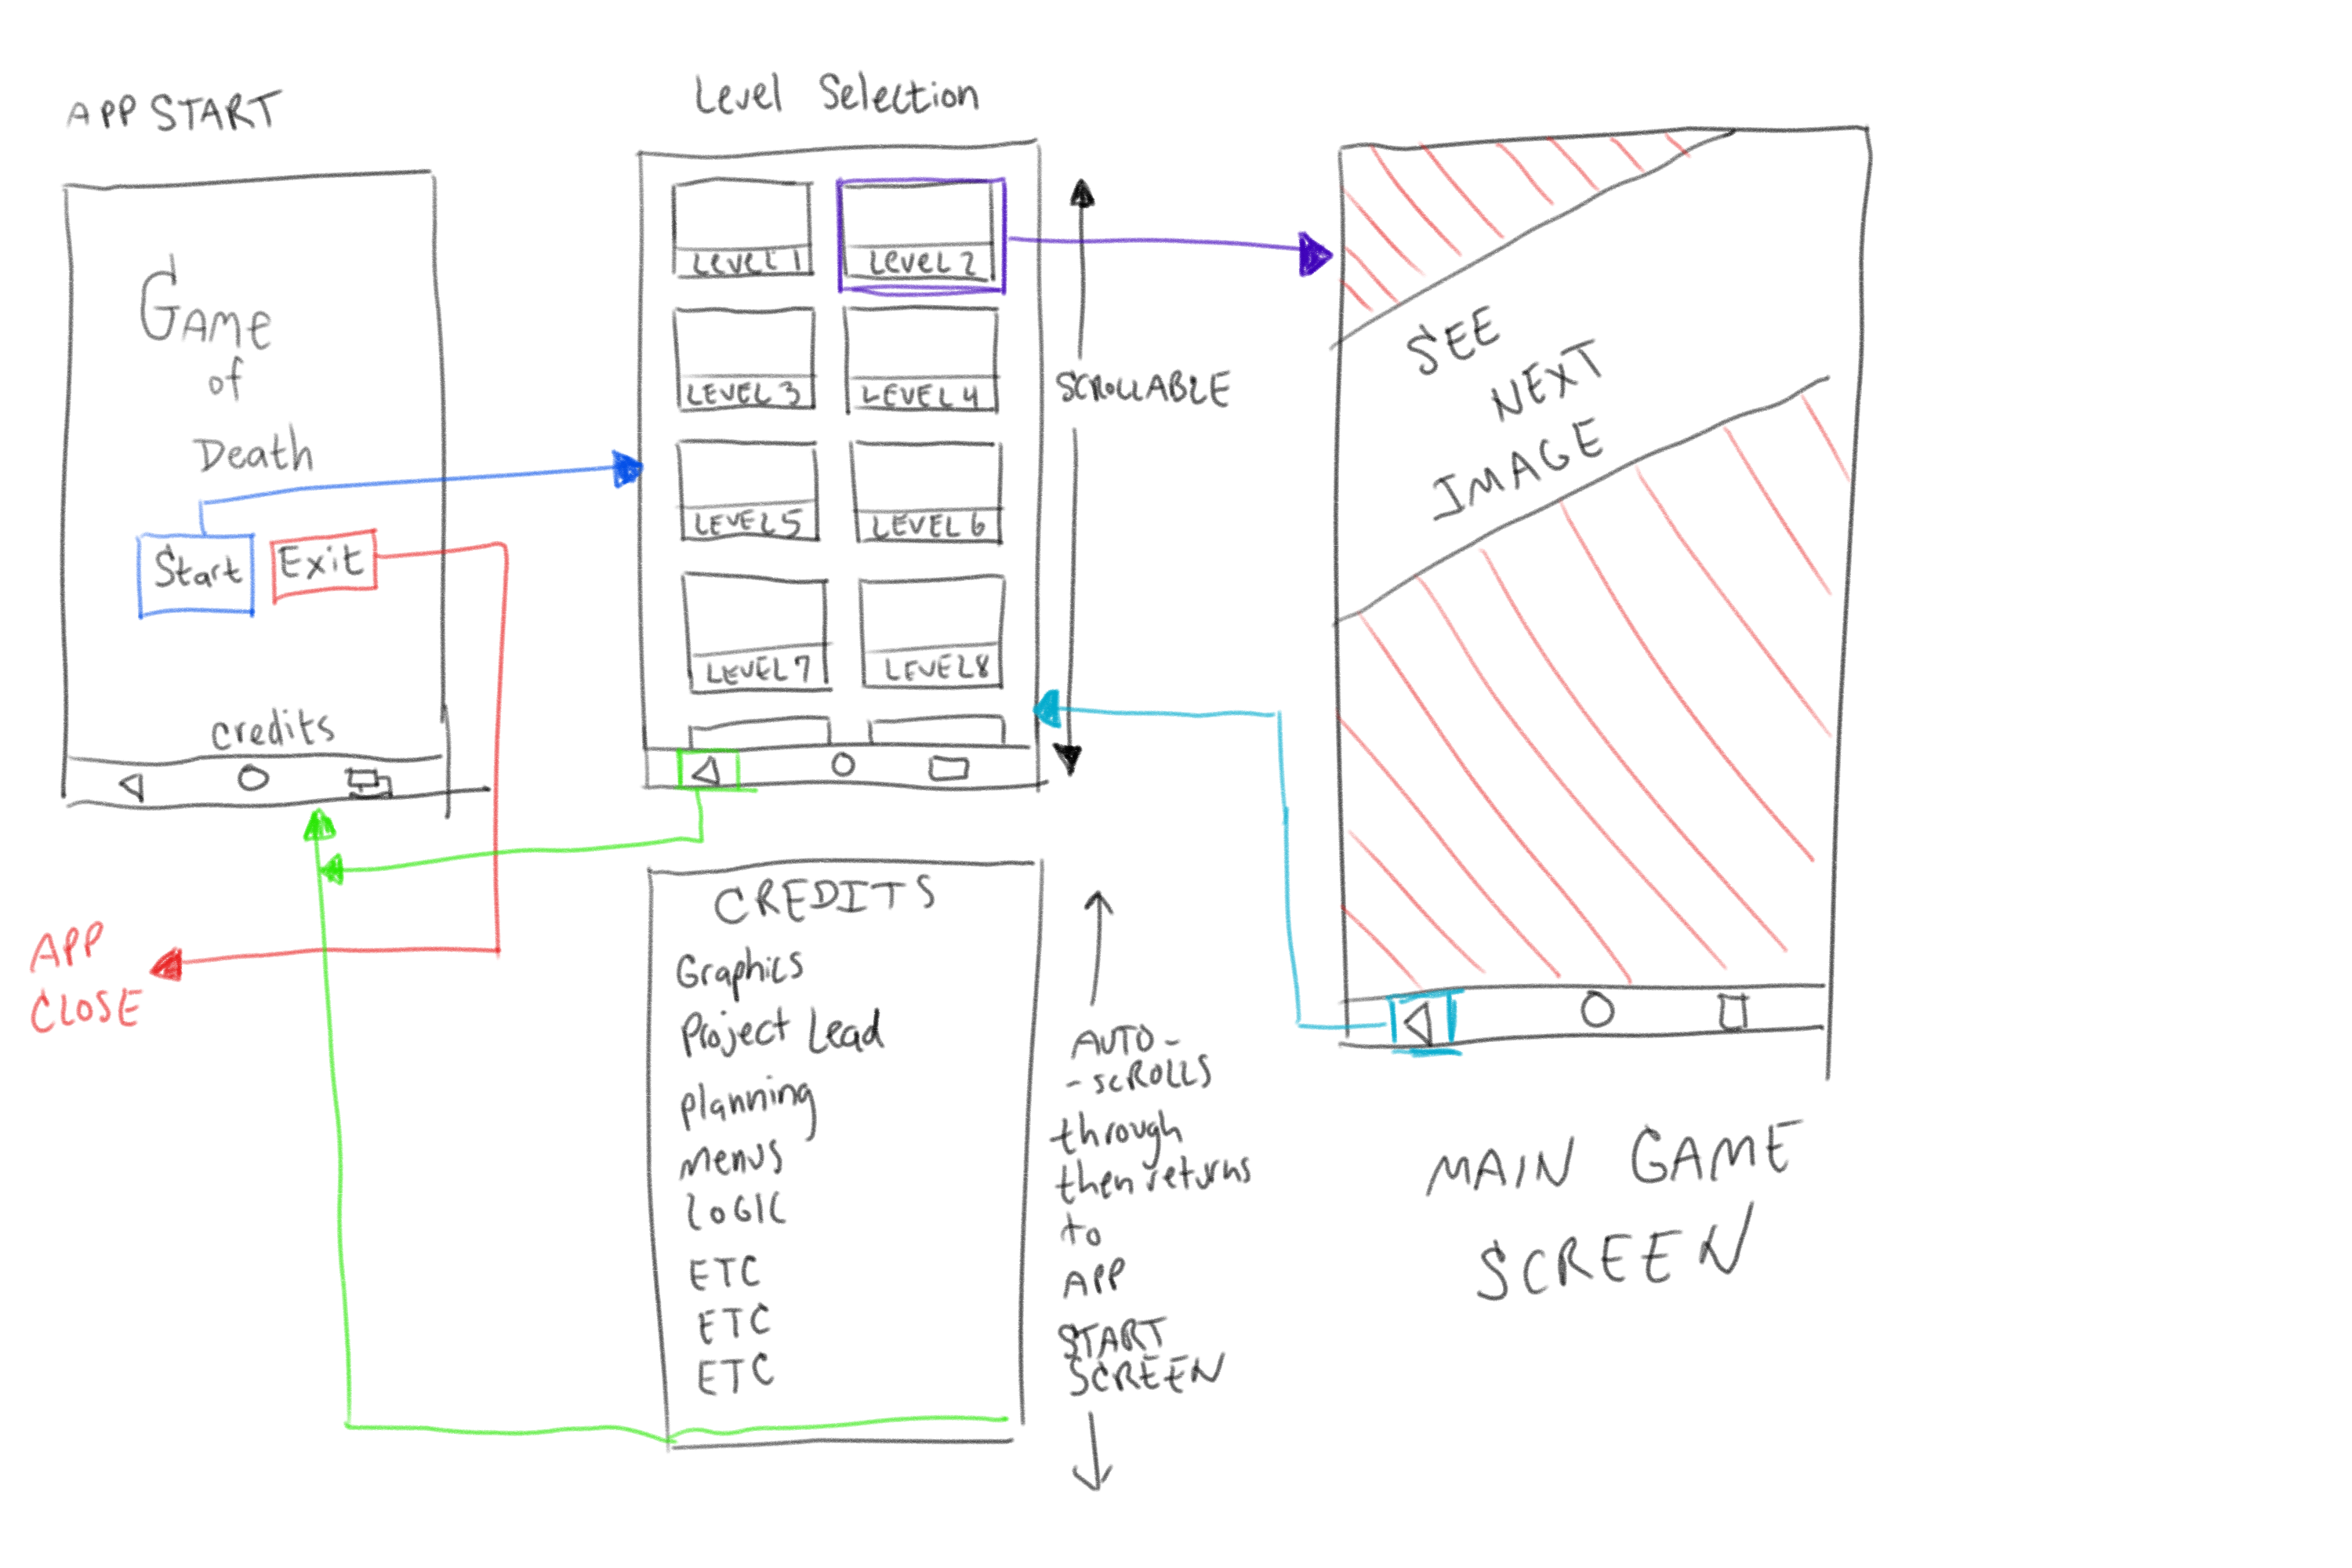 APP START
Game
of
Death
Start
Exit
credits
APP
CLOSE
Level Selection
LEVEL 1
LEVEL 2
LEVEL 3
LEVEL 4
LEVEL 5
LEVEL 6
LEVEL 7
LEVEL 8
SCROLLABLE
CREDITS
Graphics
Project Lead
planning
menus
LOGIC
ETC
ETC
ETC
AUTO-
-SCROLLS
through
then returns
to
APP
START
SCREEN
SEE
NEXT
IMAGE
MAIN GAME
SCREEN